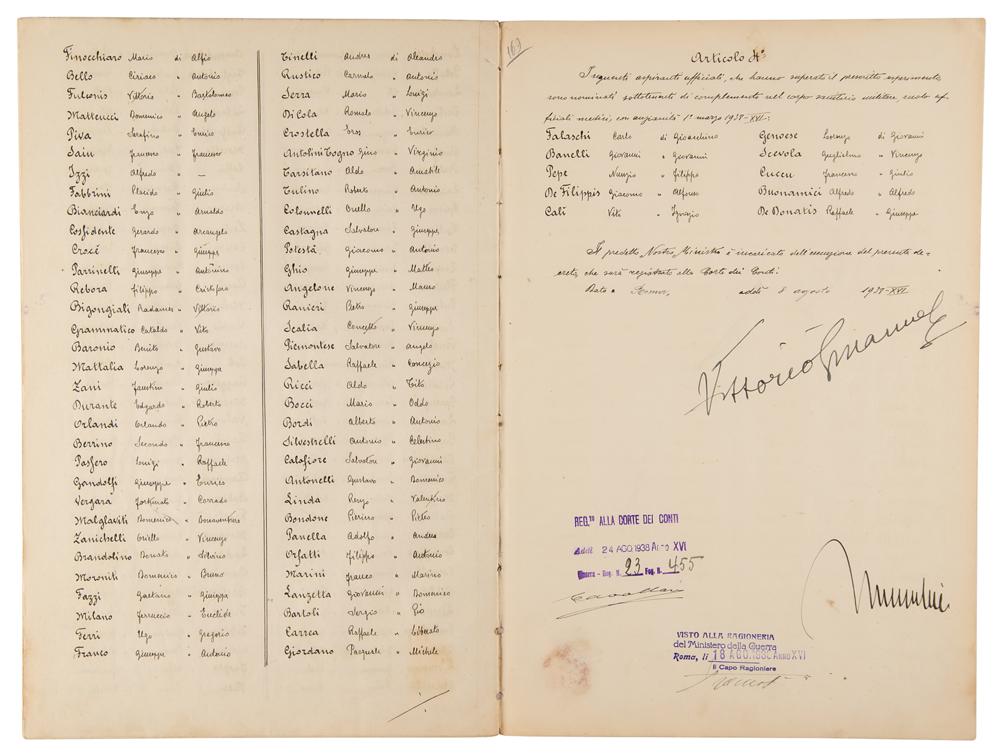 Finocchiaro Mario di Alfio
Bello Ciriaco " Antonio
Fulconis Vittorio " Bartolomeo
Matteucci Domenico " Angelo
Piva Serafino " Enrico
Sain " 
Izzi Alfredo " —
Fabbrini Placido " Giulio
Bianciardi Enzo " Arnaldo
Cosfidente Gerardo " Arcangelo
Crocé Francesco " Giuseppe
Parrinelli Giuseppe " Antonino
Rebora Filippo " Cristoforo
Bigongiali Radames " Vittorio
Grammatico Cataldo " Vito
Baronio Benito " Gustavo
Mattalia Lorenzo " Giuseppe
Zani Faustino " Giulio
Durante Edgardo " Roberto
Orlandi Orlando " Pietro
Berrino Secondo " Francesco
Pasfero Luigi " Raffaele
Gandolfi Giuseppe " Enrico
Vergara Fortunato " Corrado
Malglaviti Domenico " Bonaventura
Zanichelli Oriello " Vincenzo
Brandolino Donato " Silvino
Moroniti Domenico " Bruno
Fazzi Gaetano " Giuseppe
Milano Ferruccio " Euclide
Ferri Ugo " Gregorio
Franco Giuseppe " Antonio
Tinelli Andrea di Aleandro
Rustico Carmelo " Antonio
Serra Mario " Luigi
Di Cola Romolo " Vincenzo
Crostella Eros "
Antolini Togno Gino " Virginio
Tarsitano Aldo " Amabile
Tulino Roberto " Antonio
Colonnelli Oriello " Ugo
Castagna Salvatore " Giuseppe
Potestà Giacomo " Antonio
Ghio Giuseppe " Matteo
Angelone Vincenzo " Mauro
Ranieri Pietro " Giuseppe
Scalia Concetto " Vincenzo
Piemontese Salvatore " Angelo
Labella Raffaele " Concezio
Ricci Aldo " Tito
Bocci Mario " Oddo
Bordi Alberto " Antonio
Silvestrelli Antonio " Celestino
Calafiore Salvatore " Giovanni
Antonelli Gustavo " Domenico
Linda Renzo " Valentino
Bondone Pierino " Pietro
Panella Adolfo " Andrea
Orfatti Filippo " Antonio
Marini Franco " Marino
Lanzetta Giovanni " Domenico
Bartoli Sergio " Pio
Carrea Raffaele " Liberato
Giordano Pasquale " Michele
Articolo 4°
I seguenti aspiranti ufficiali, che hanno superato il prescritto esperimento
sono nominati sottotenenti di complemento nel corpo sanitario militare, ruolo uf-
ficiali medici, con anzianità 1° marzo 1938-XVI:
Falaschi Carlo di Gioiardino Genoese Lorenzo di Giovanni
Banelli Giovanni " Giovanni Scevola Guglielmo " Vincenzo
Pepe Nunzio " Filippo Cuccu Francesco " Giulio
De Filippis Giacomo " Alfonso Buonamici Alfredo " Alfredo
Calì Vito " Ignazio De Donatis Raffaele " Giuseppe
Il predetto Nostro Ministro è incaricato dell'esecuzione del presente de-
creto, che sarà registrato alla Corte dei Conti.
Dato a Roma, addì 8 agosto 1938-XVI
Vittorio Emanuele
REG.TO ALLA CORTE DEI CONTI
Addì 24 AGO.1938 Anno XVI
Guerra - Reg. N. 23 Fog. N. 455
Mussolini
VISTO ALLA RAGIONERIA
del Ministero della Guerra
Roma, li 18 AGO.1938 ANNO XVI
Il Capo Ragioniere